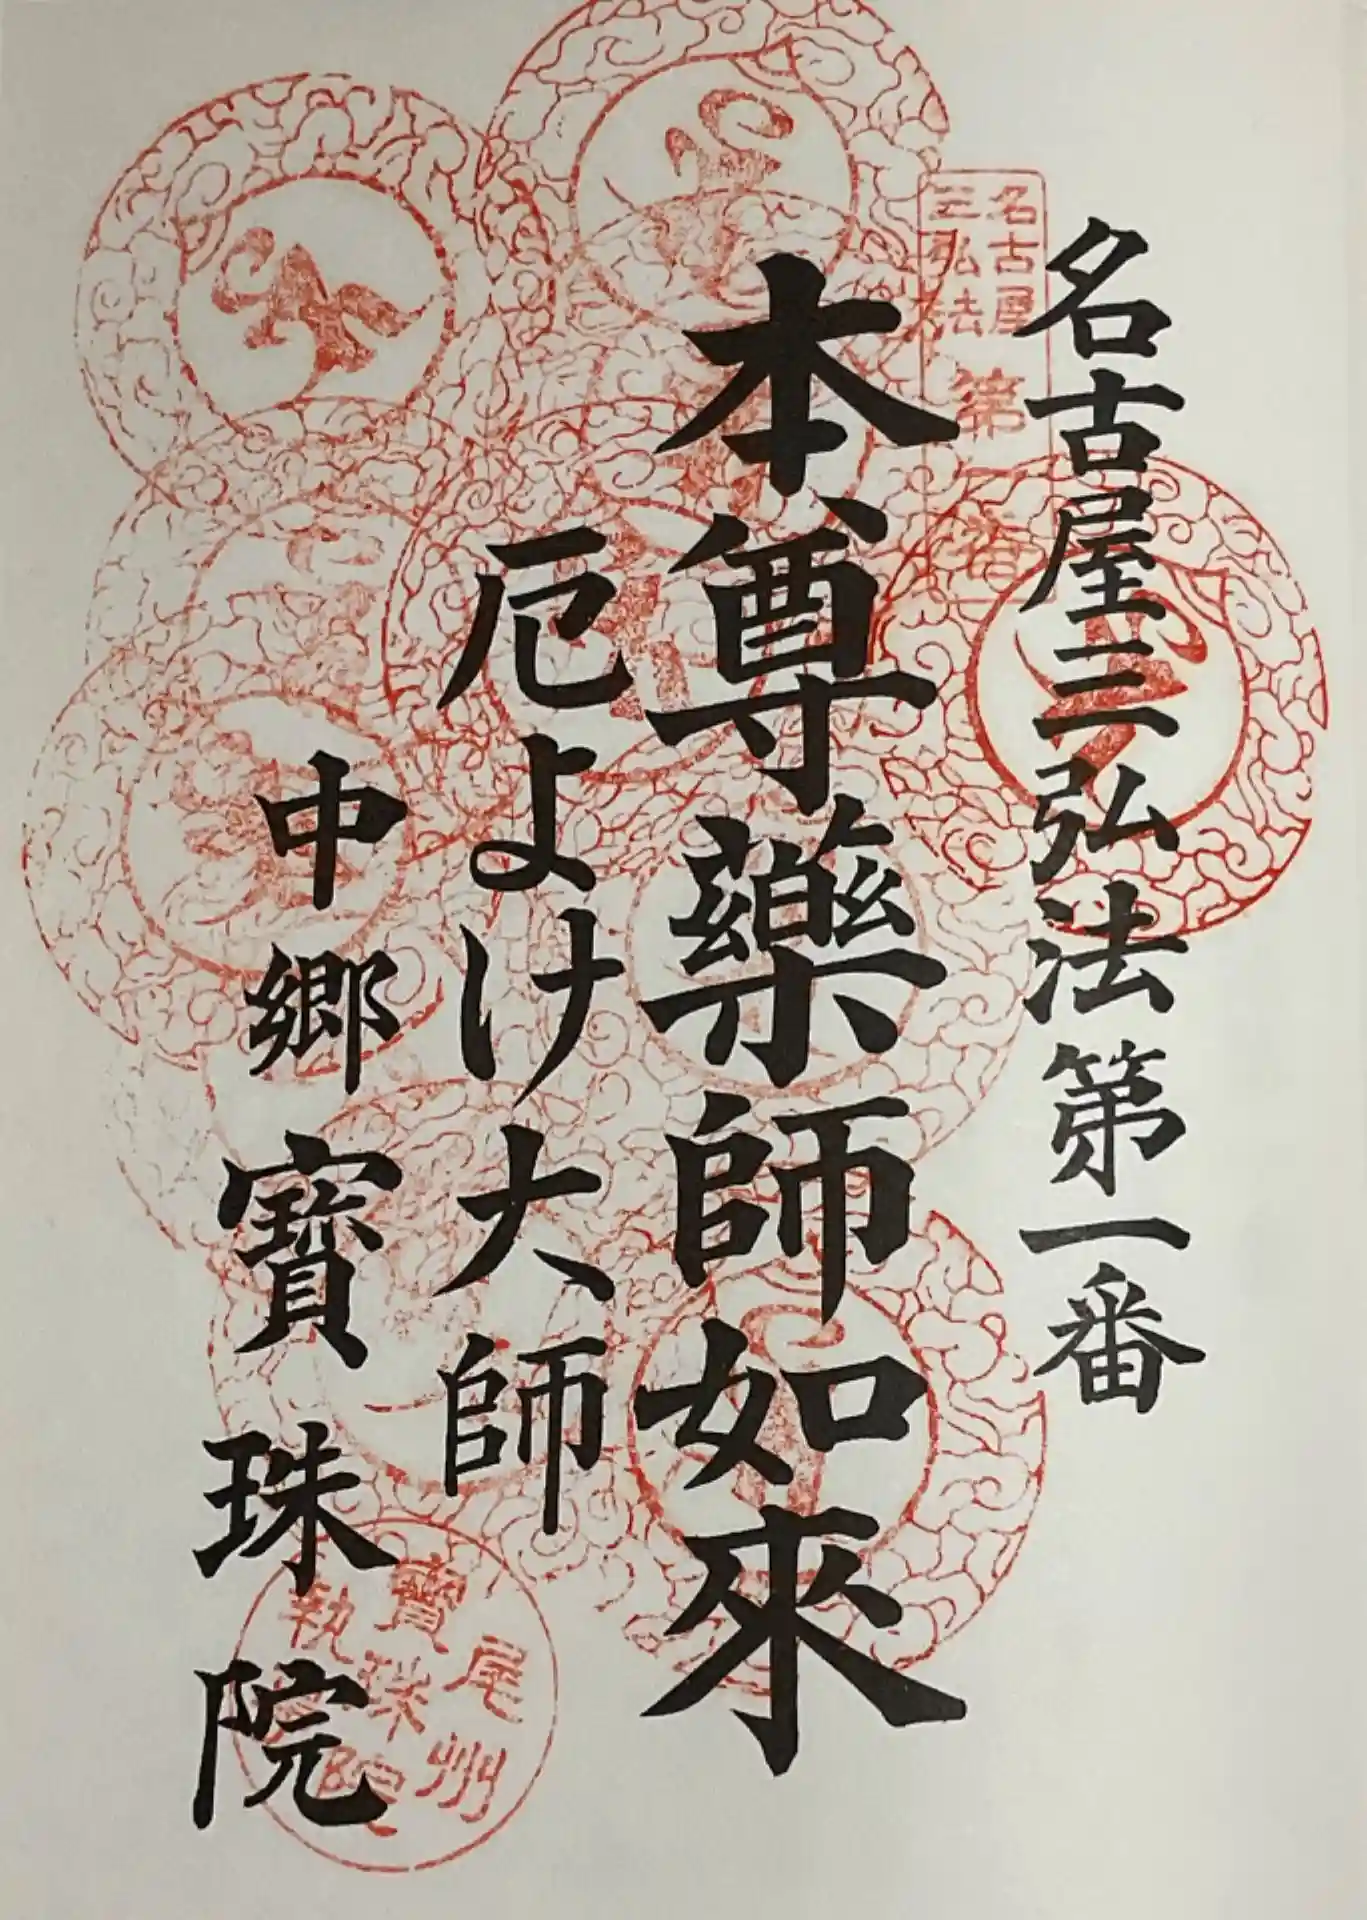 名古屋三弘法第一番
本尊藥師如來
厄よけ大師
中郷寶珠院
名古屋
三弘法
第一番
尾州
寶珠院
執